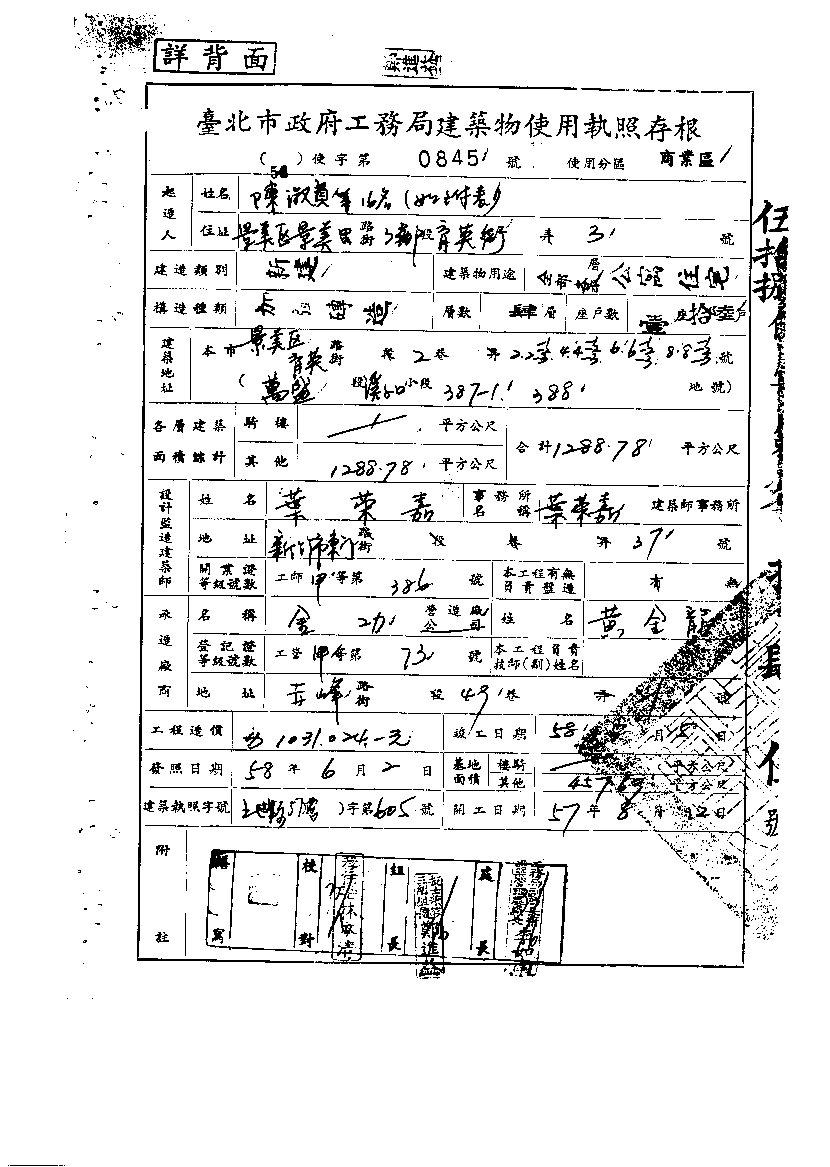 詳背面
鄭進益
臺北市政府工務局建築物使用執照存根
(58)使字第 0845 號 使用分區 商業區
起造人 姓名 陳淑員等16名(如附表)
住址 景美區景美里 路街 段 育英街 弄 3 號
建造類別 新建 建築物用途 層 公寓住宅
構造種類 加強磚造 層數 肆層 座戶數 壹座拾陸戶
建築地址 本市 景美区育英 路街 段 2 巷 弄 2.2 4.4 6.6 8.8 號
(萬盛 段溪口小段 387-1 388 地號)
各層建築面積餘計 騎樓 平方公尺
其他 1288.78 平方公尺 合計 1288.78 平方公尺
設計監造建築師 姓名 葉荣嘉 事務所名稱 葉荣嘉 建築師事務所
地址 新竹市東 路街 段 巷 弄 37 號
開業證等級號數 工師甲等第 386 號 本工程有無負責監造 有 無
承造廠商 名稱 金功 營造廠公司 姓名 黃全龍
登記證等級號數 工營甲等第 73 號 本工程負責技師(副)姓名
地址 路街 段 49 巷 弄 號
工程造價 1031.024.-元 竣工日期 58 月 5 日
發照日期 58 年 6 月 2 日 基地面積 樓騎 (平方公尺)
其他 457.69 平方公尺
建築執照字號 字第 605 號 開工日期 57 年 8 月 12 日
附註
繕寫 校對 組長 鄭進益 處長
伍拾捌
號